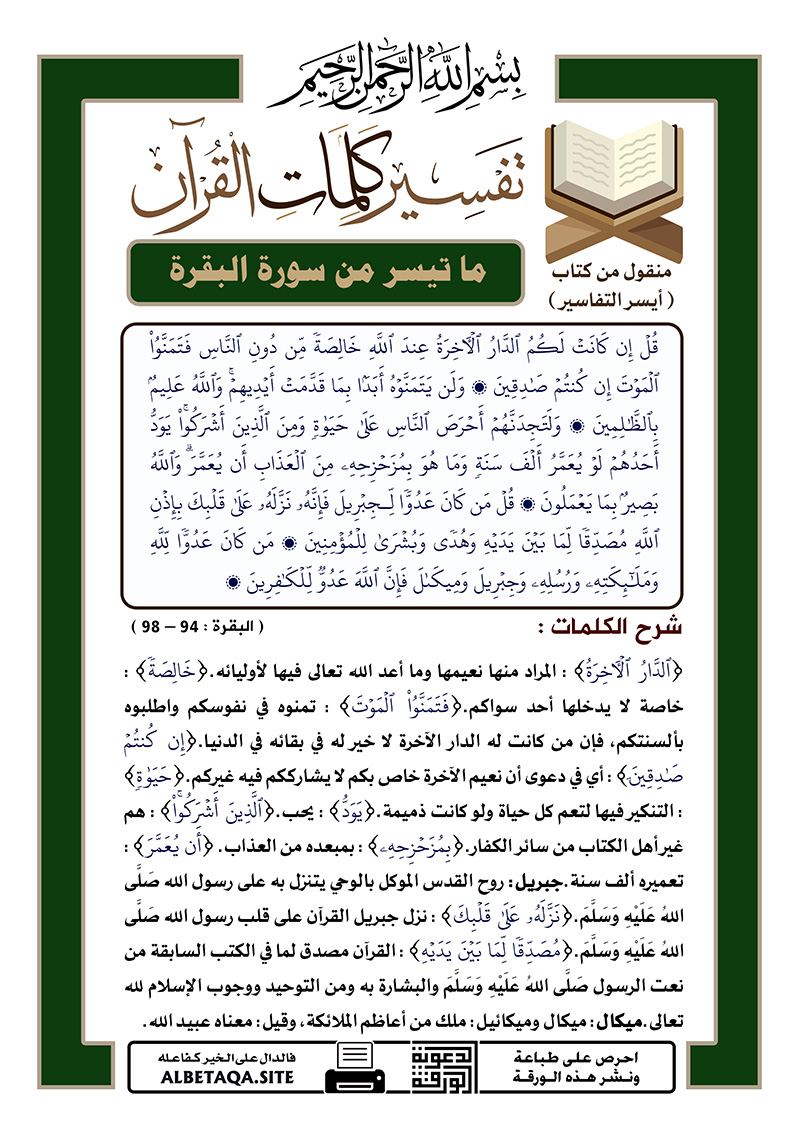 بِسْمِ اللَّهِ الرَّحْمَنِ الرَّحِيمِ
تفسير كلمات القرآن
ما تيسر من سورة البقرة
منقول من كتاب
( أيسر التفاسير )
قُلْ إِن كَانَتْ لَكُمُ ٱلدَّارُ ٱلْـَٔاخِرَةُ عِندَ ٱللَّهِ خَالِصَةً مِّن دُونِ ٱلنَّاسِ فَتَمَنَّوُا۟
ٱلْمَوْتَ إِن كُنتُمْ صَـٰدِقِينَ ۝ وَلَن يَتَمَنَّوْهُ أَبَدًۢا بِمَا قَدَّمَتْ أَيْدِيهِمْ ۗ وَٱللَّهُ عَلِيمٌۢ
بِٱلظَّـٰلِمِينَ ۝ وَلَتَجِدَنَّهُمْ أَحْرَصَ ٱلنَّاسِ عَلَىٰ حَيَوٰةٍ وَمِنَ ٱلَّذِينَ أَشْرَكُوا۟ ۚ يَوَدُّ
أَحَدُهُمْ لَوْ يُعَمَّرُ أَلْفَ سَنَةٍ وَمَا هُوَ بِمُزَحْزِحِهِۦ مِنَ ٱلْعَذَابِ أَن يُعَمَّرَ ۗ وَٱللَّهُ
بَصِيرٌۢ بِمَا يَعْمَلُونَ ۝ قُلْ مَن كَانَ عَدُوًّا لِّجِبْرِيلَ فَإِنَّهُۥ نَزَّلَهُۥ عَلَىٰ قَلْبِكَ بِإِذْنِ
ٱللَّهِ مُصَدِّقًا لِّمَا بَيْنَ يَدَيْهِ وَهُدًى وَبُشْرَىٰ لِلْمُؤْمِنِينَ ۝ مَن كَانَ عَدُوًّا لِّلَّهِ
وَمَلَـٰٓئِكَتِهِۦ وَرُسُلِهِۦ وَجِبْرِيلَ وَمِيكَىٰلَ فَإِنَّ ٱللَّهَ عَدُوٌّ لِّلْكَـٰفِرِينَ ۝
شرح الكلمات : ( البقرة : 94 – 98 )
﴿ٱلدَّارُ ٱلْـَٔاخِرَةُ﴾ : المراد منها نعيمها وما أعد الله تعالى فيها لأوليائه.﴿خَالِصَةً﴾ :
خاصة لا يدخلها أحد سواكم.﴿فَتَمَنَّوُا۟ ٱلْمَوْتَ﴾ : تمنوه في نفوسكم واطلبوه
بألسنتكم، فإن من كانت له الدار الآخرة لا خير له في بقائه في الدنيا.﴿إِن كُنتُمْ
صَـٰدِقِينَ﴾ : أي في دعوى أن نعيم الآخرة خاص بكم لا يشارككم فيه غيركم.﴿حَيَوٰةٍ﴾
: التنكير فيها لتعم كل حياة ولو كانت ذميمة.﴿يَوَدُّ﴾ : يحب.﴿ٱلَّذِينَ أَشْرَكُوا۟ ۚ﴾ : هم
غير أهل الكتاب من سائر الكفار.﴿بِمُزَحْزِحِهِۦ﴾ : بمبعده من العذاب. ﴿أَن يُعَمَّرَ﴾ :
تعميره ألف سنة.جبريل: روح القدس الموكل بالوحي يتنزل به على رسول الله صَلَّى
اللهُ عَلَيْهِ وَسَلَّمَ.﴿نَزَّلَهُۥ عَلَىٰ قَلْبِكَ﴾ : نزل جبريل القرآن على قلب رسول الله صَلَّى
اللهُ عَلَيْهِ وَسَلَّمَ.﴿مُصَدِّقًا لِّمَا بَيْنَ يَدَيْهِ﴾ : القرآن مصدق لما في الكتب السابقة من
نعت الرسول صَلَّى اللهُ عَلَيْهِ وَسَلَّمَ والبشارة به ومن التوحيد ووجوب الإسلام لله
تعالى.ميكال: ميكال وميكائيل: ملك من أعاظم الملائكة، وقيل: معناه عبيد الله.
احرص على طباعة
ونشر هذه الورقة
الورقة الدعوية
فالدال على الخير كفاعله
ALBETAQA.SITE